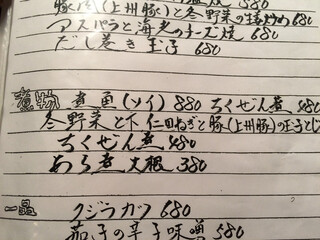 580
豚肉(上州豚)と冬野菜の 炒め 680
アスパラと海老のチーズ焼 680
だし巻き玉子 680
煮物 煮魚(ソイ) 880 ちくぜん煮 480
冬野菜と下仁田ねぎと豚(上州豚)の玉子とじ
ちくぜん煮 480
あら煮大根 380
一品
クジラカツ 680
茄子の辛子味噌 580